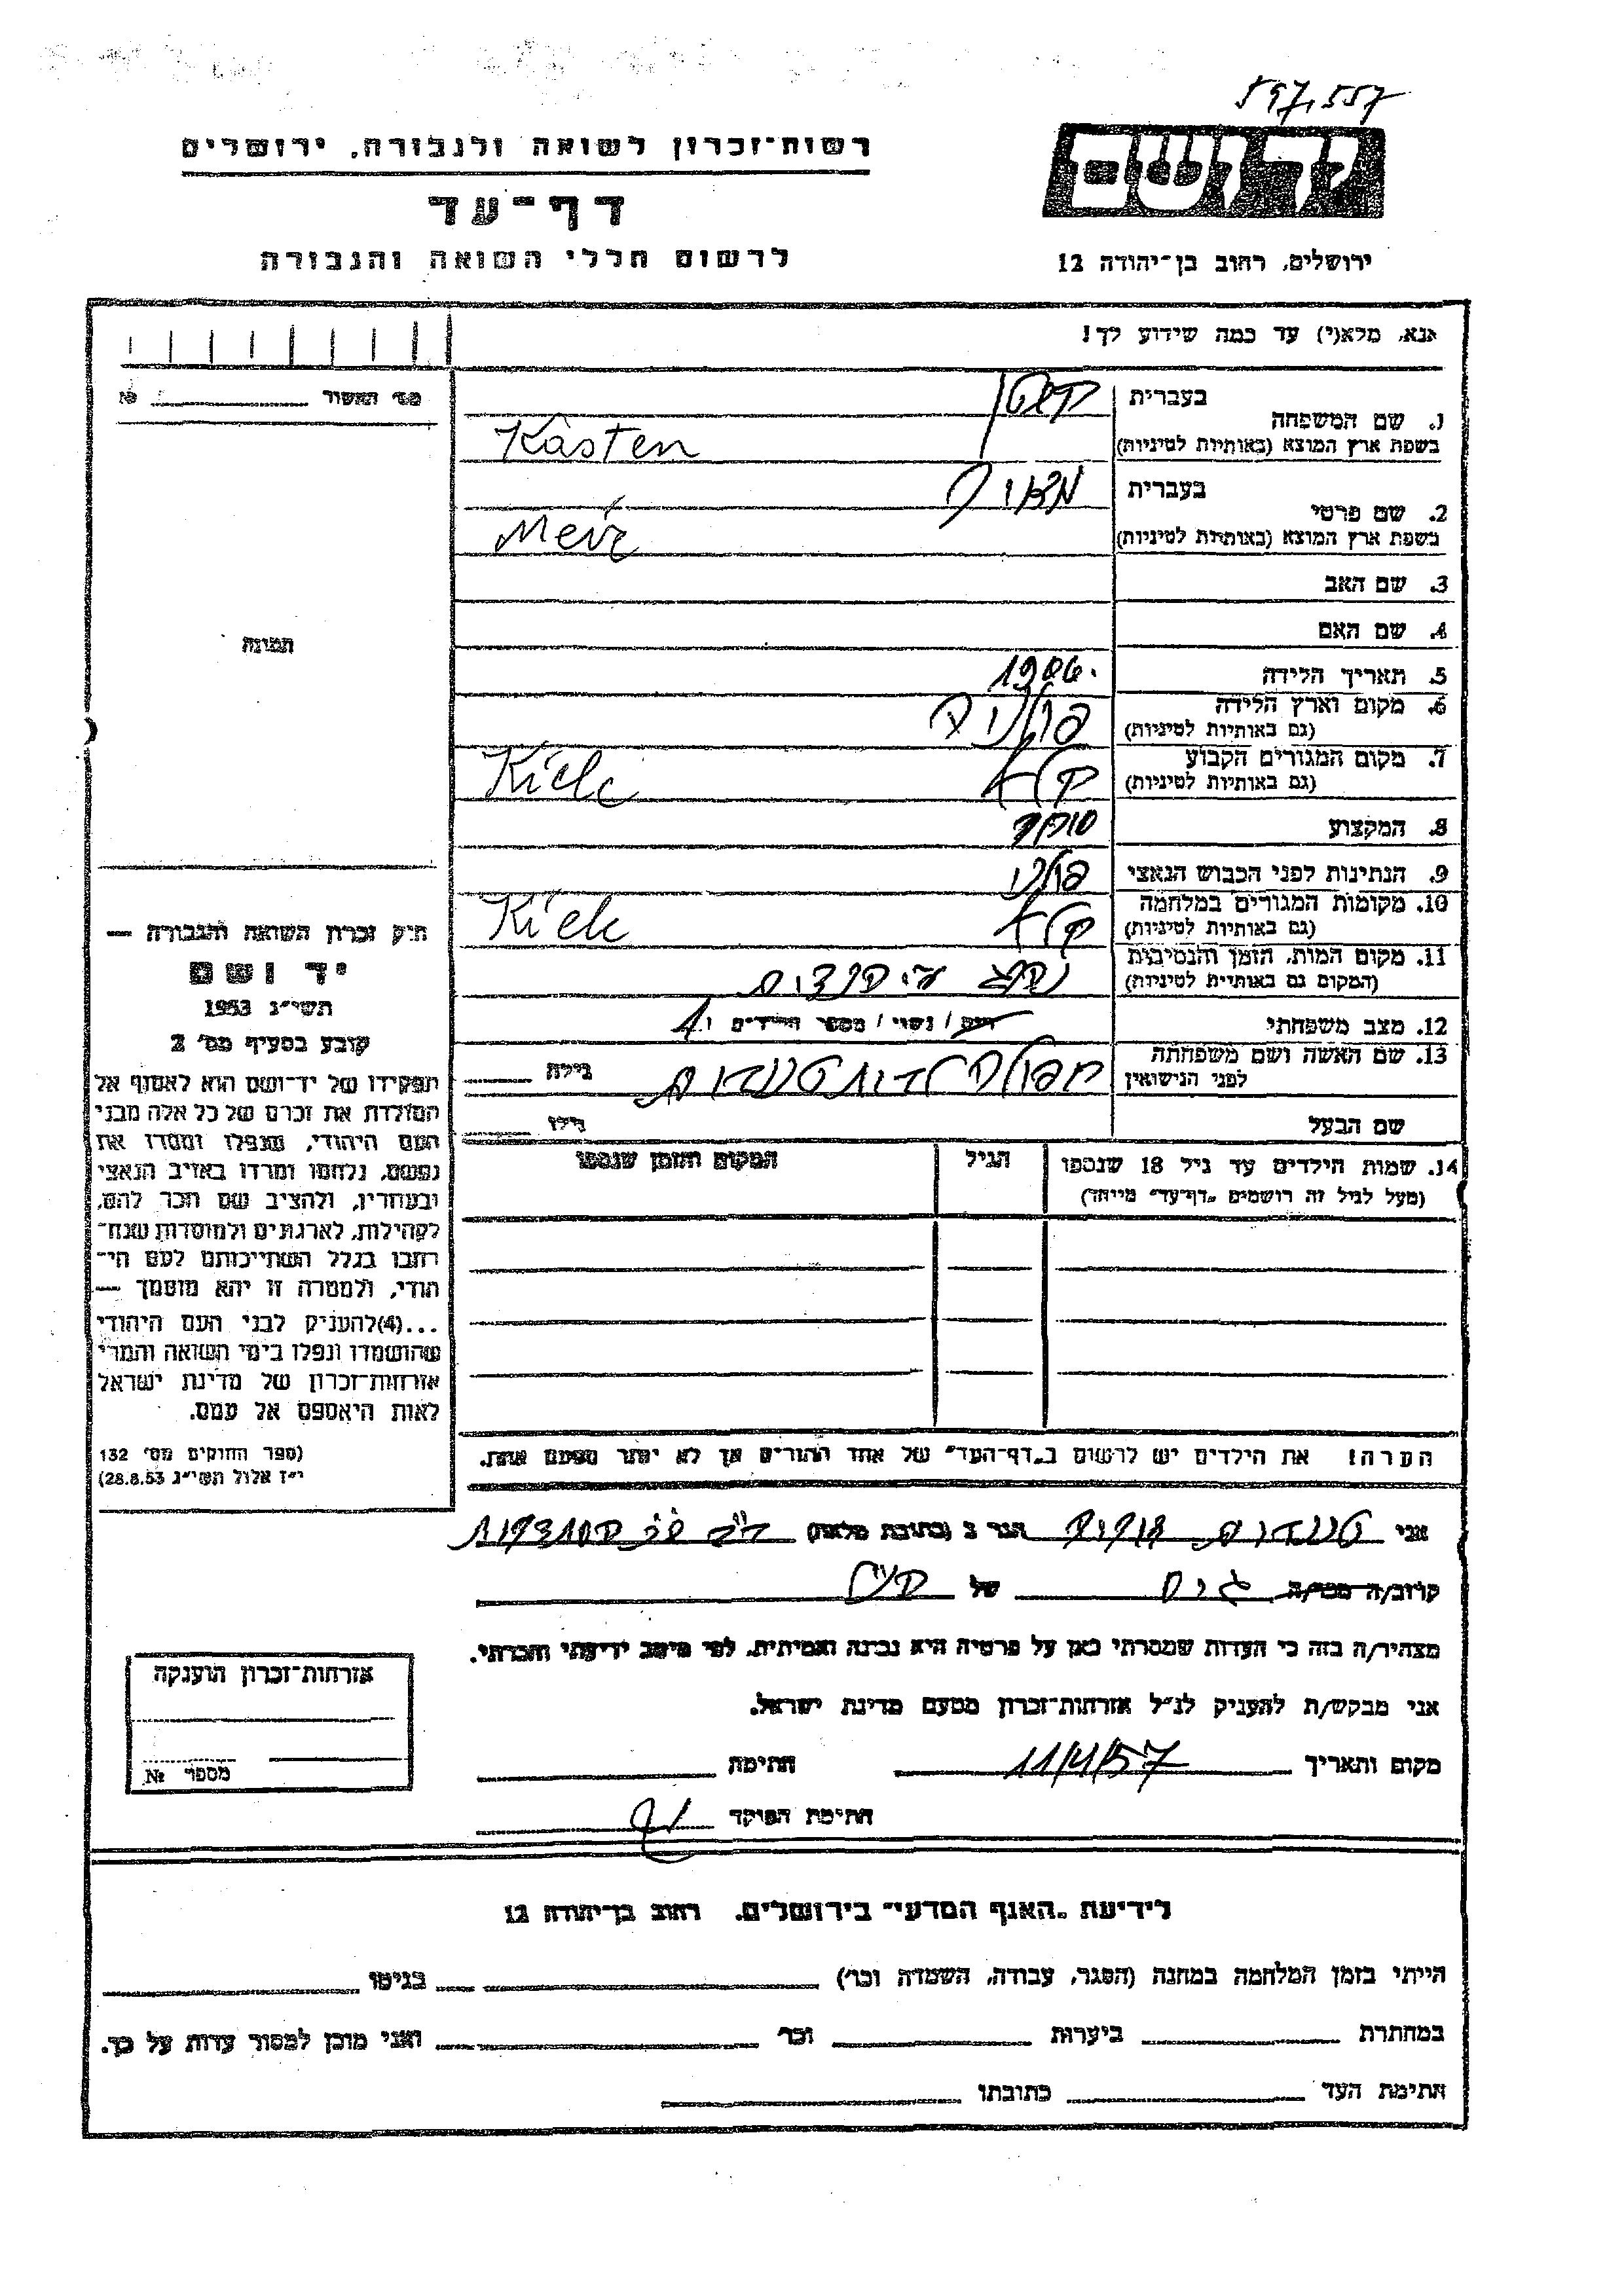 597,557
רשות-זכרון לשואה ולגבורה, ירושלים
דף-עד
לרשום חללי השואה והגבורה
יד ושם
ירושלים, רחוב בן-יהודה 12
אנא, מלא(י) עד כמה שידוע לך!
מס' האשור № ______
1. שם המשפחה
בעברית
בשפת ארץ המוצא (באותיות לטיניות)
Kasten
2. שם פרטי
בעברית מאיר
בשפת ארץ המוצא (באותיות לטיניות)
Meir
3. שם האב
4. שם האם
תמונה
5. תאריך הלידה 1906.
6. מקום וארץ הלידה
(גם באותיות לטיניות)
פולניה
7. מקום המגורים הקבוע
(גם באותיות לטיניות)
קלץ Kielc
8. המקצוע סוחר
9. הנתינות לפני הכבוש הנאצי פולני
10. מקומות המגורים במלחמה
(גם באותיות לטיניות)
קלץ Kielc
11. מקום המות, הזמן והנסיבות
(המקום גם באותיות לטיניות)
נספה ע"י הנאצים
12. מצב משפחתי רווק / נשוי / מספר הילדים 1
13. שם האשה ושם משפחתה
לפני הנישואין
גילה
שם הבעל גילו
14. שמות הילדים עד גיל 18 שנספו
(מעל לגיל זה רושמים "דף-עד" מיוחד)
הגיל
המקום והזמן שנספו
הערה! את הילדים יש לרשום ב"דף-העד" של אחד ההורים אך לא יותר מפעם אחת.
חוק זכרון השואה והגבורה —
יד ושם
תשי"ג 1953
קובע בסעיף מס' 2
תפקידו של יד-ושם הוא לאסוף אל
המולדת את זכרם של כל אלה מבני
העם היהודי, שנפלו ומסרו את
נפשם, נלחמו ומרדו באויב הנאצי
ובעוזריו, ולהציב שם וזכר להם,
לקהילות, לארגונים ולמוסדות שנח-
רבו בגלל השתייכותם לעם הי-
הודי, ולמטרה זו יהא מוסמך —
...(4)להעניק לבני העם היהודי
שהושמדו ונפלו בימי השואה והמרי
אזרחות-זכרון של מדינת ישראל
לאות היאספם אל עמם.
(ספר החוקים מס' 132
י"ז אלול תשי"ג 28.8.53)
אני הגר ב (כתובת מלאה)
קרוב/ה מכר/ה גיס של הנ"ל
מצהיר/ה בזה כי העדות שמסרתי כאן על פרטיה היא נכונה ואמיתית, לפי מיטב ידיעתי והכרתי.
אני מבקש/ת להעניק לנ"ל אזרחות-זכרון מטעם מדינת ישראל.
מקום ותאריך 11/4/57 חתימה
חתימת הפוקד
אזרחות-זכרון הוענקה
מספר №
לידיעת "האגף המדעי" בירושלים, רחוב בן-יהודה 12
הייתי בזמן המלחמה במחנה (הסגר, עבודה, השמדה וכו') בגיטו
במחתרת ביערות וכו' ואני מוכן למסור עדות על כך.
חתימת העד כתובתו